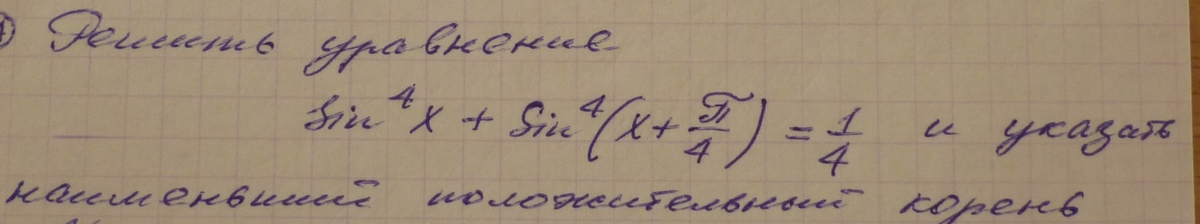 Решить уравнение
sin⁴x + sin⁴(x + π/4) = 1/4 и указать
наименьший положительный корень